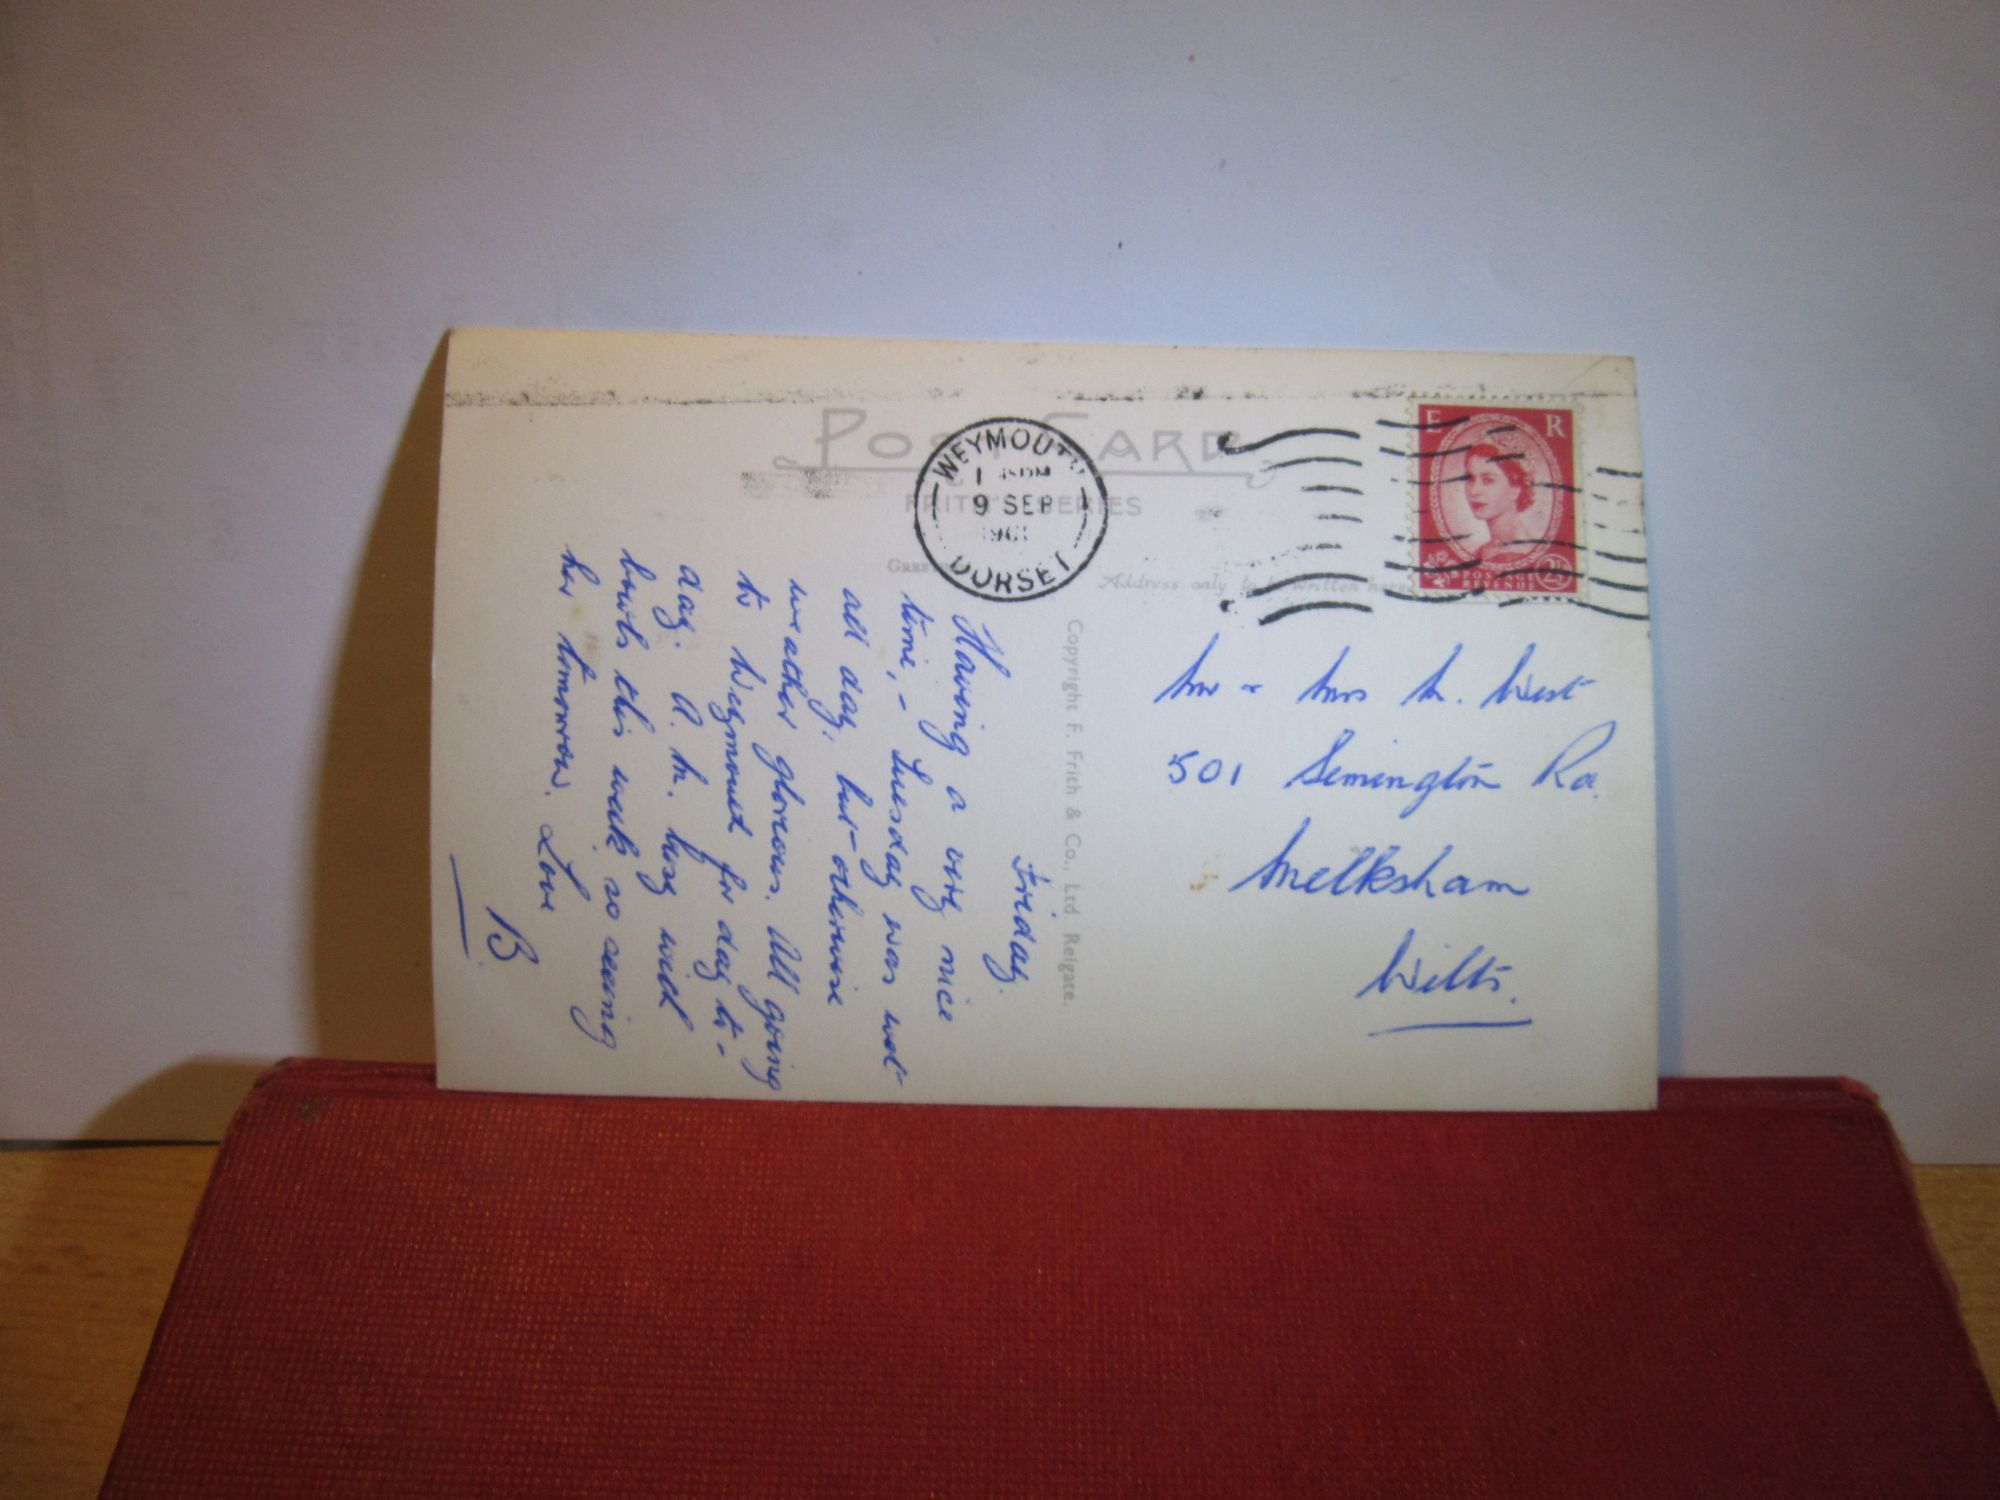 POST CARD
FRITH'S SERIES
WEYMOUTH
9 SEP
1961
DORSET
E R
POSTAGE
REVENUE
2½
Address only to be written here
Copyright F. Frith & Co., Ltd. Reigate.
Mr & Mrs M. West
501 Semington Rd.
Melksham
Wilts.
Friday.
Having a very nice
time, - Tuesday was wet
all day, but otherwise
weather glorious. All going
to Weymouth for day to-
day. A. M. busy with
bowls this week, so seeing
her tomorrow. Love
B